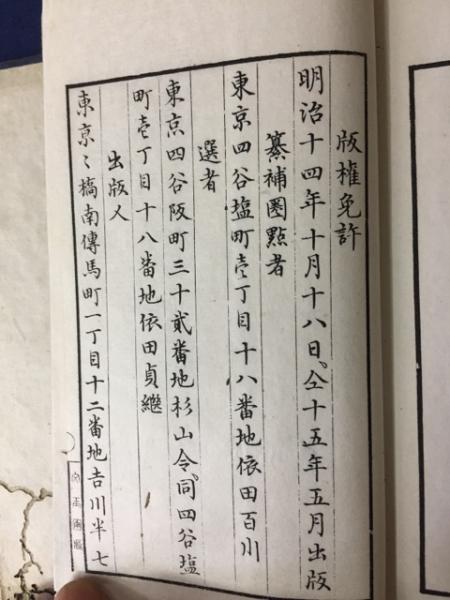 版權免許
明治十四年十月十八日、仝十五年五月出版
纂補圈點者
東京四谷塩町壱丁目十八番地依田百川
選者
東京四谷阪町三十貳番地杉山令、同四谷塩
町壱丁目十八番地依田貞継
出版人
東京々橋南傳馬町一丁目十二番地吉川半七